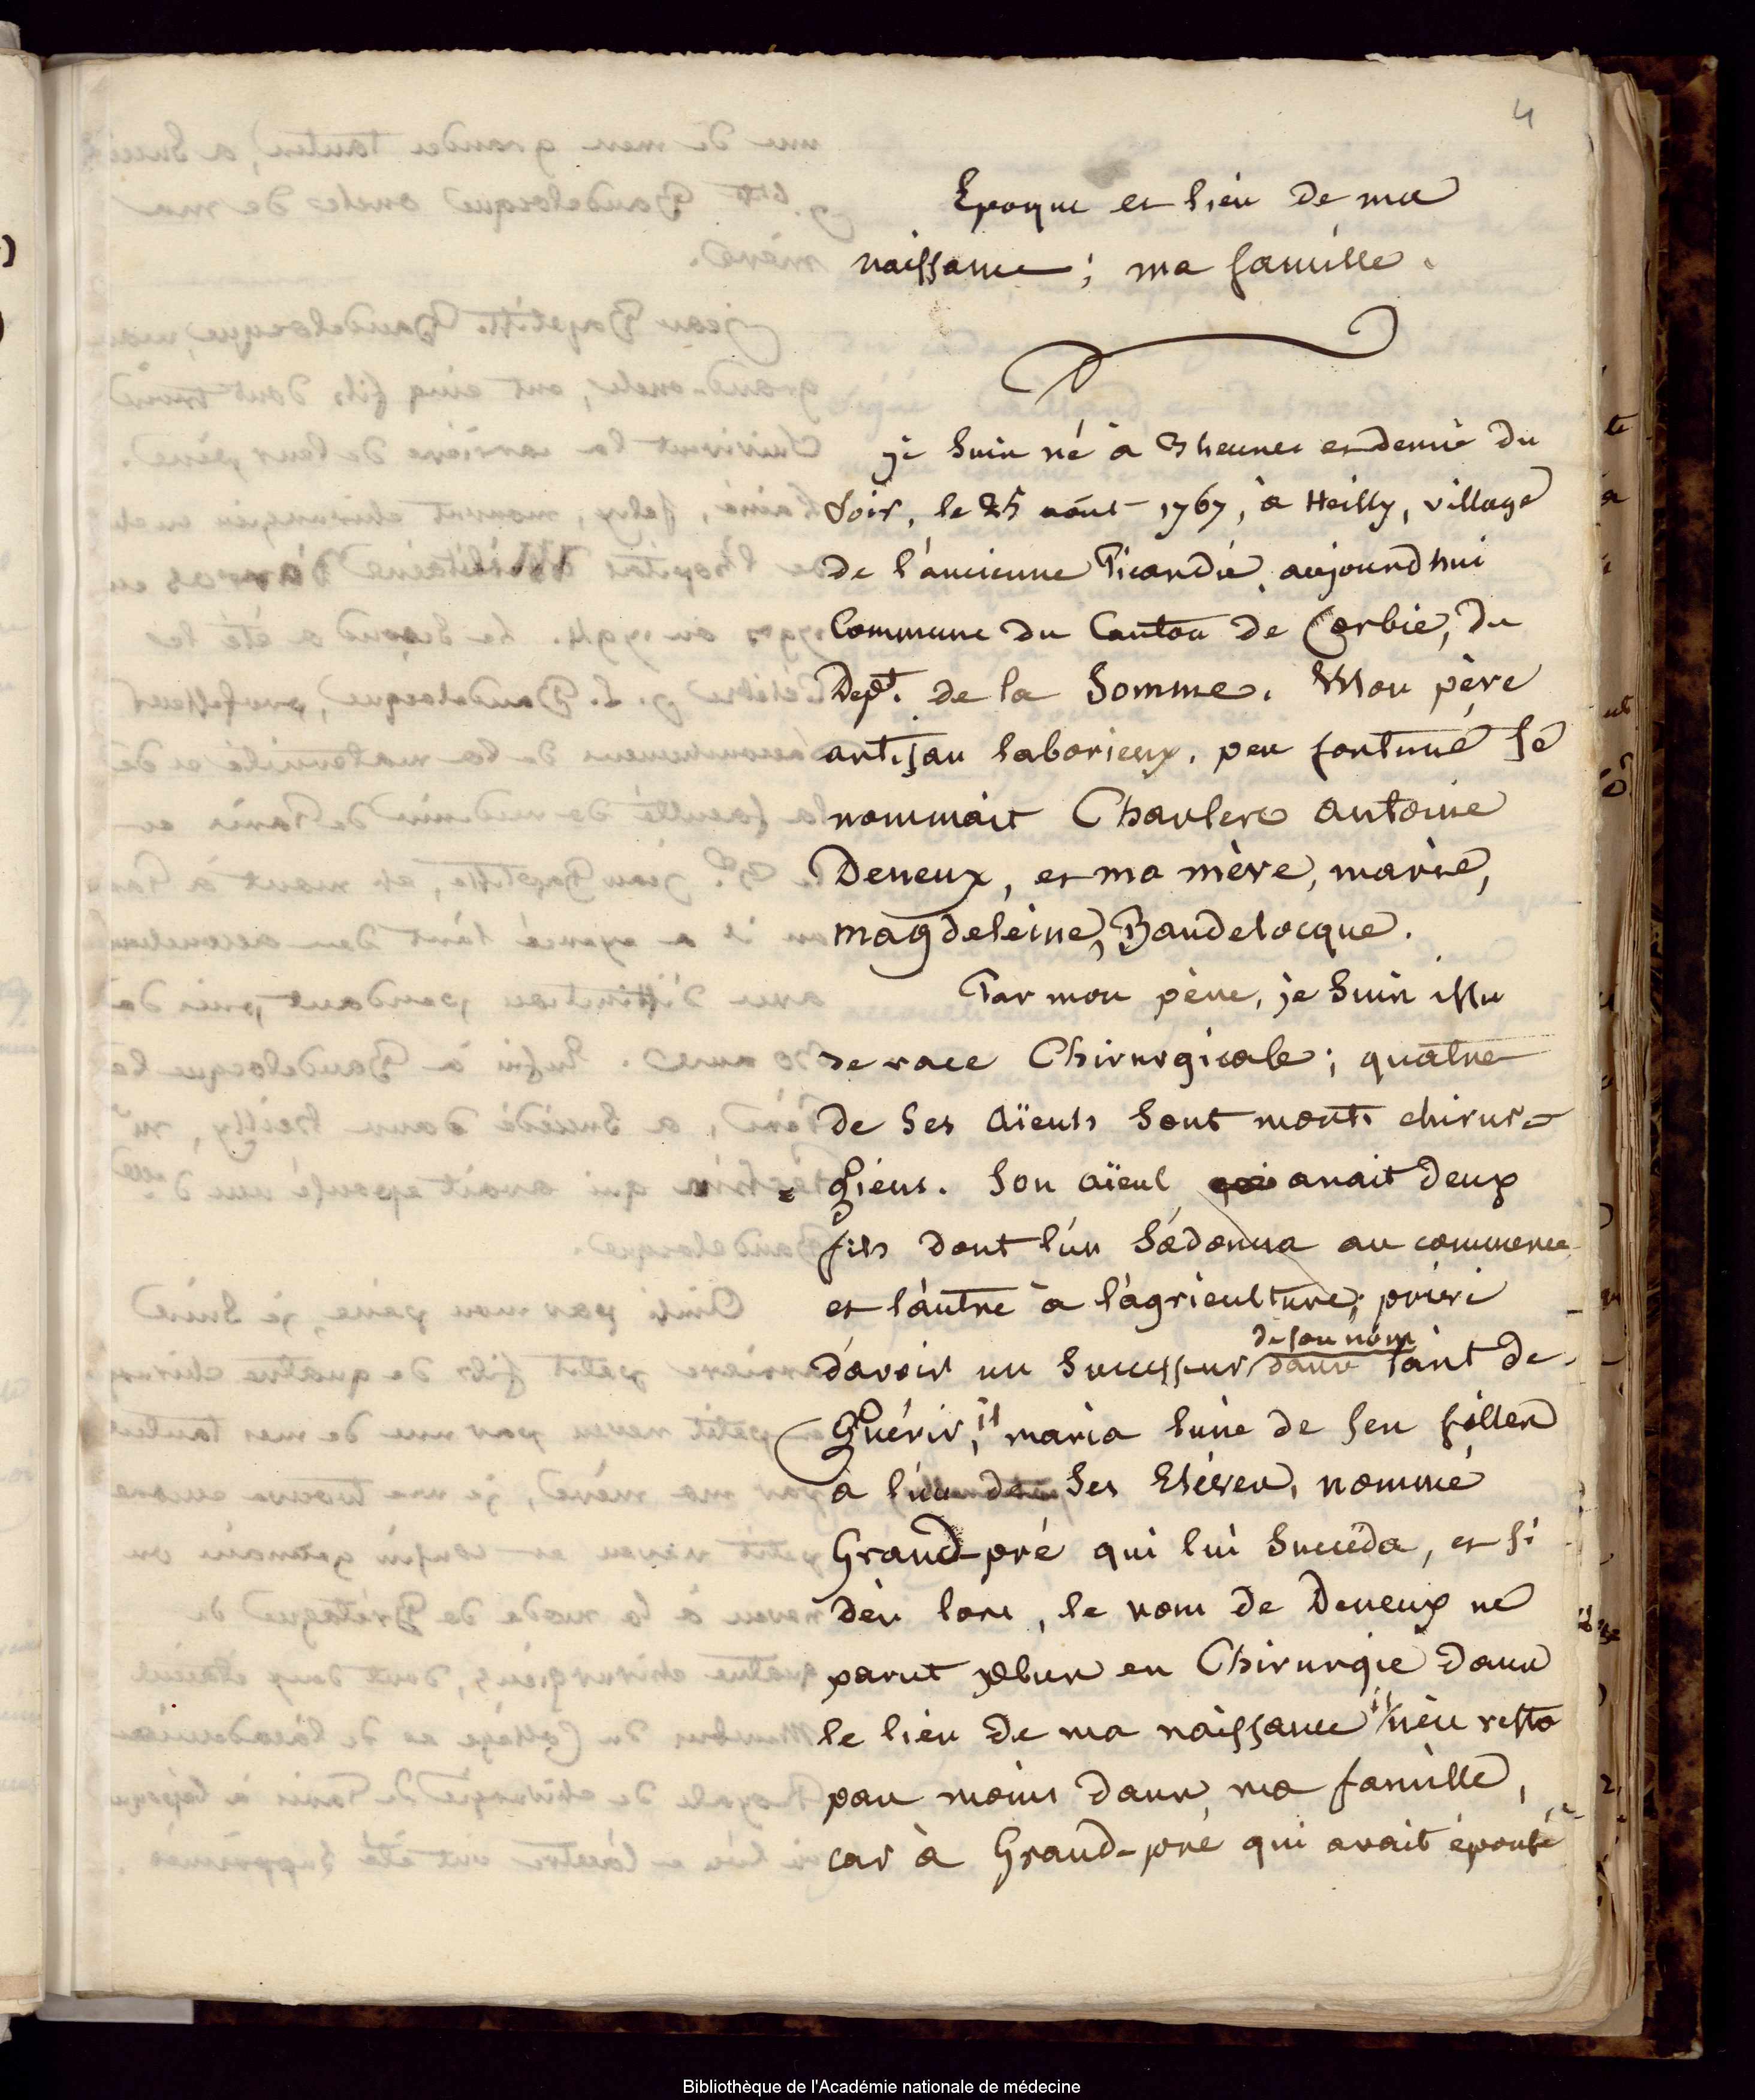 4
Epoque et lieu de ma
naissance; ma famille.
je suis né à 3 heures et demie du
soir, le 25 août 1767, à Heilly, village
de l'ancienne Picardie, aujourd'hui
Commune du Canton de Corbie, du
Dept. de la Somme. Mon père
artisan laborieux, peu fortuné se
nommait Charles Antoine
Deneux, et ma mère, marie,
magdeleine, Baudelocque.
Par mon père, je suis issu
de race Chirurgicale; quatre
de ses aïeuls sont morts chirur=
=giens. Son aïeul qui avait deux
fils dont l'un s'adonna au commerce
et l'autre à l'agriculture; privé
de son nom
d'avoir un successeur dans l'art de
Guérir, il maria l'une de ses filles
à l'un de ses Elèves, nommé
Grand-pré qui lui succéda, et si
dès lors, le nom de Deneux ne
parut plus en Chirurgie dans
le lieu de ma naissance il n'en resta
pas moins dans ma famille,
car à Grand-pré qui avait épousé
Bibliothèque de l'Académie nationale de médecine